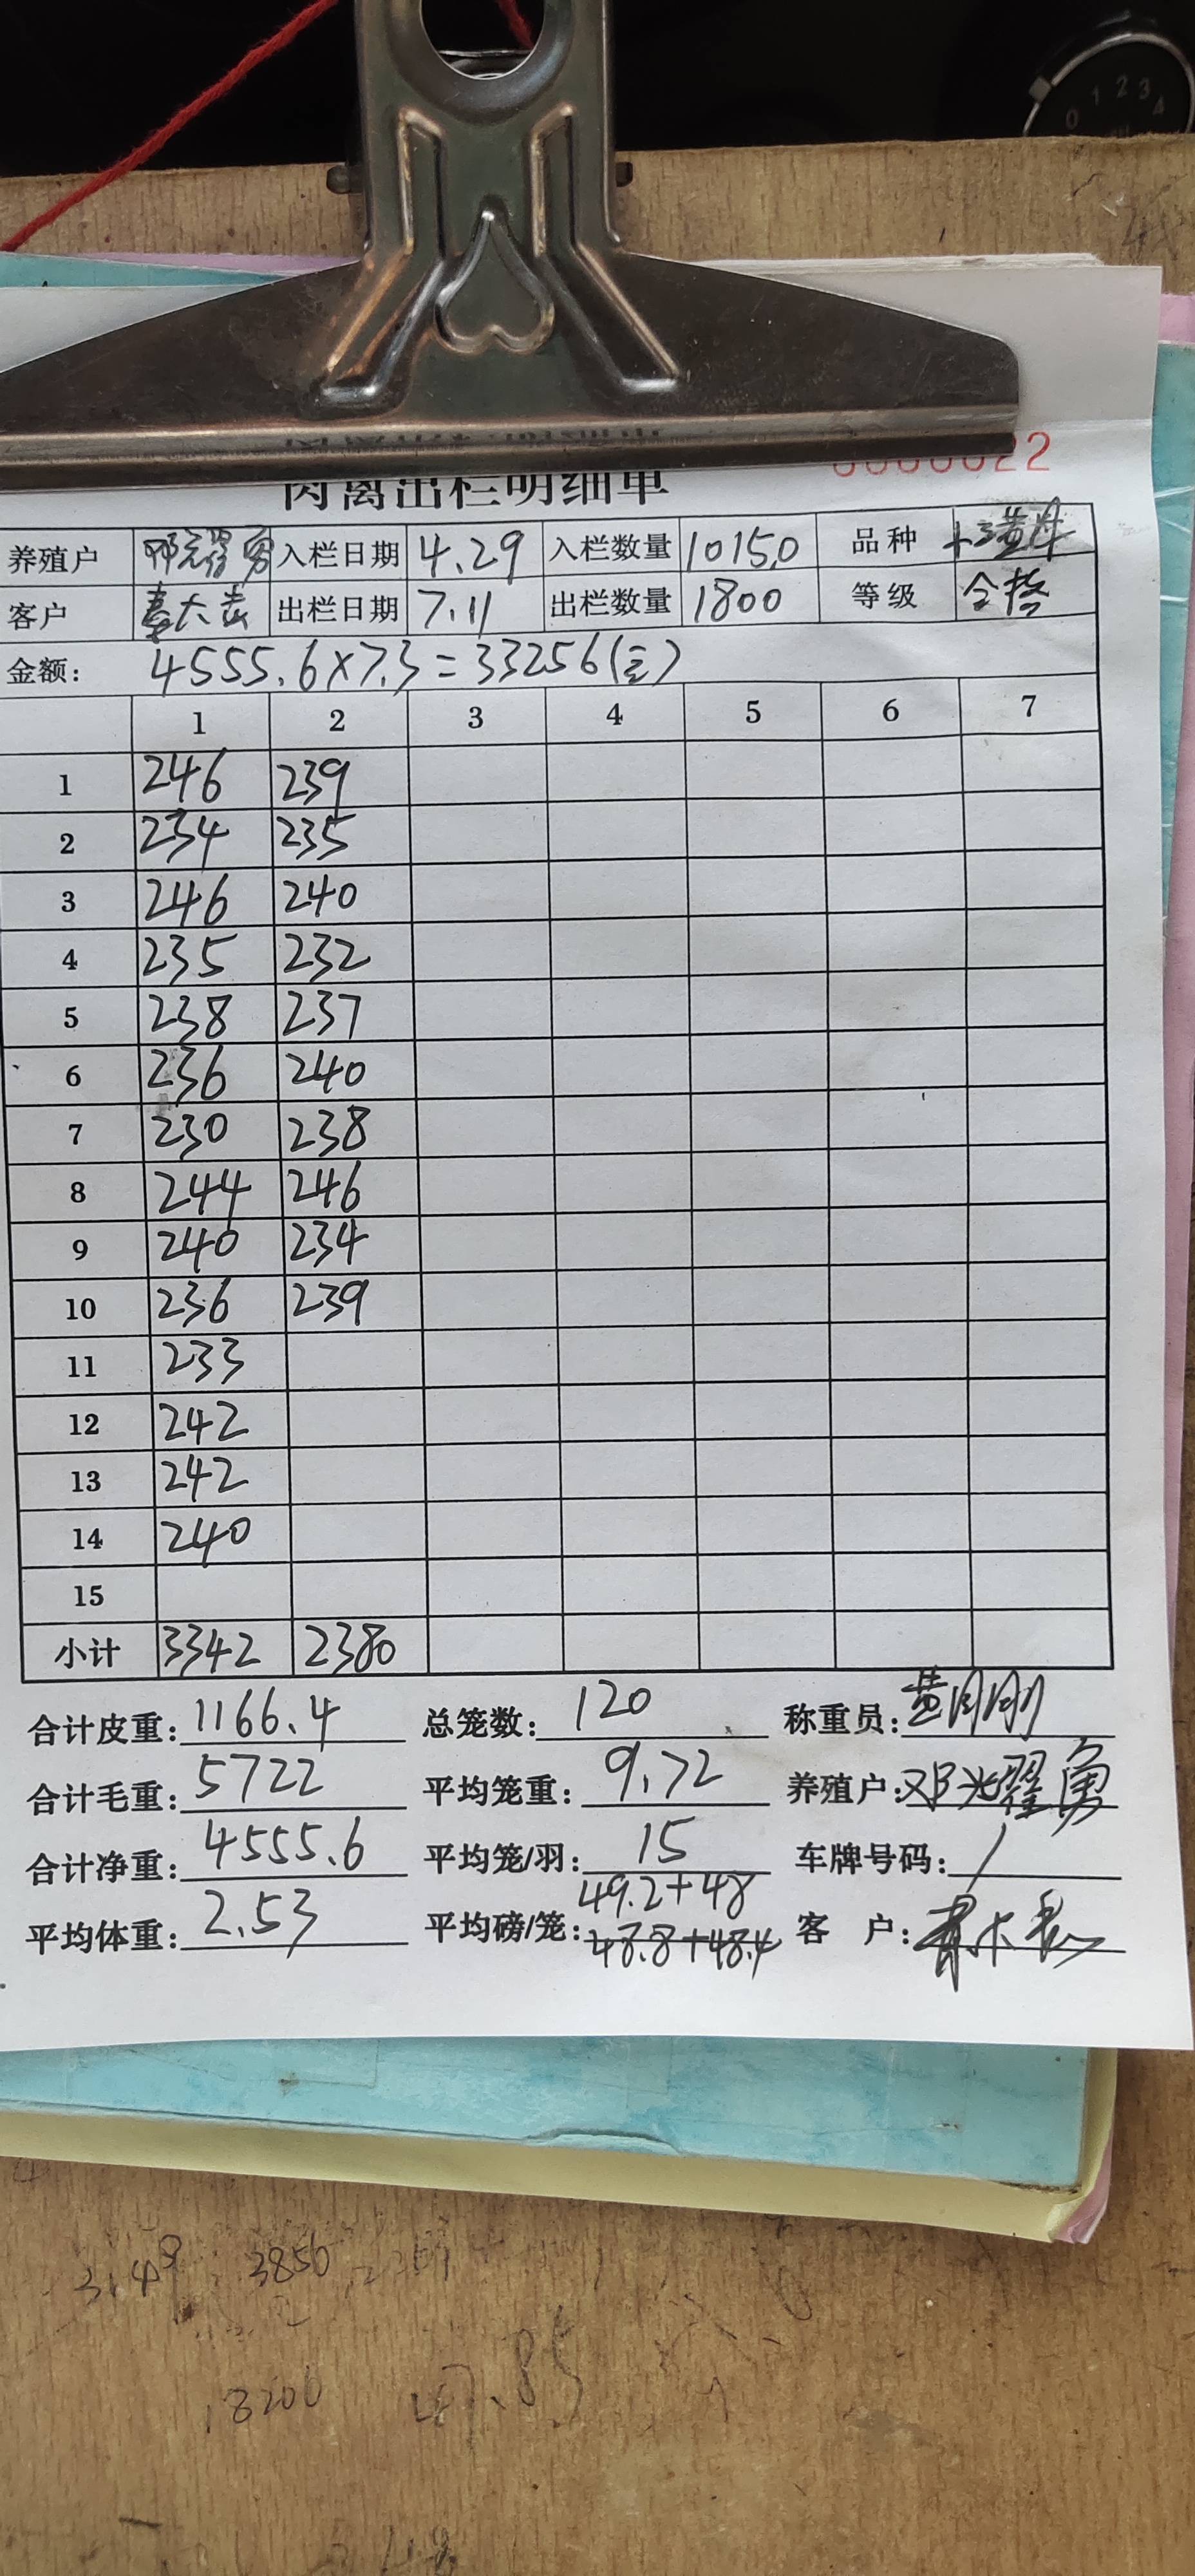 22
肉禽出栏明细单
养殖户 邓耀勇 入栏日期 4.29 入栏数量 10150 品种
客户 出栏日期 7.11 出栏数量 1800 等级 合格
金额: 4555.6×7.3=33256(元)
1 2 3 4 5 6 7
1 246 239
2 234 235
3 246 240
4 235 232
5 238 237
6 236 240
7 230 238
8 244 246
9 240 234
10 236 239
11 233
12 242
13 242
14 240
15
小计 3342 2380
合计皮重: 1166.4 总笼数: 120 称重员: 黄刚刚
合计毛重: 5722 平均笼重: 9.72 养殖户: 邓耀勇
合计净重: 4555.6 平均笼/羽: 15 车牌号码: /
49.2+48
平均体重: 2.53 平均磅/笼: 48.8+48.4 客 户:
3850
18200